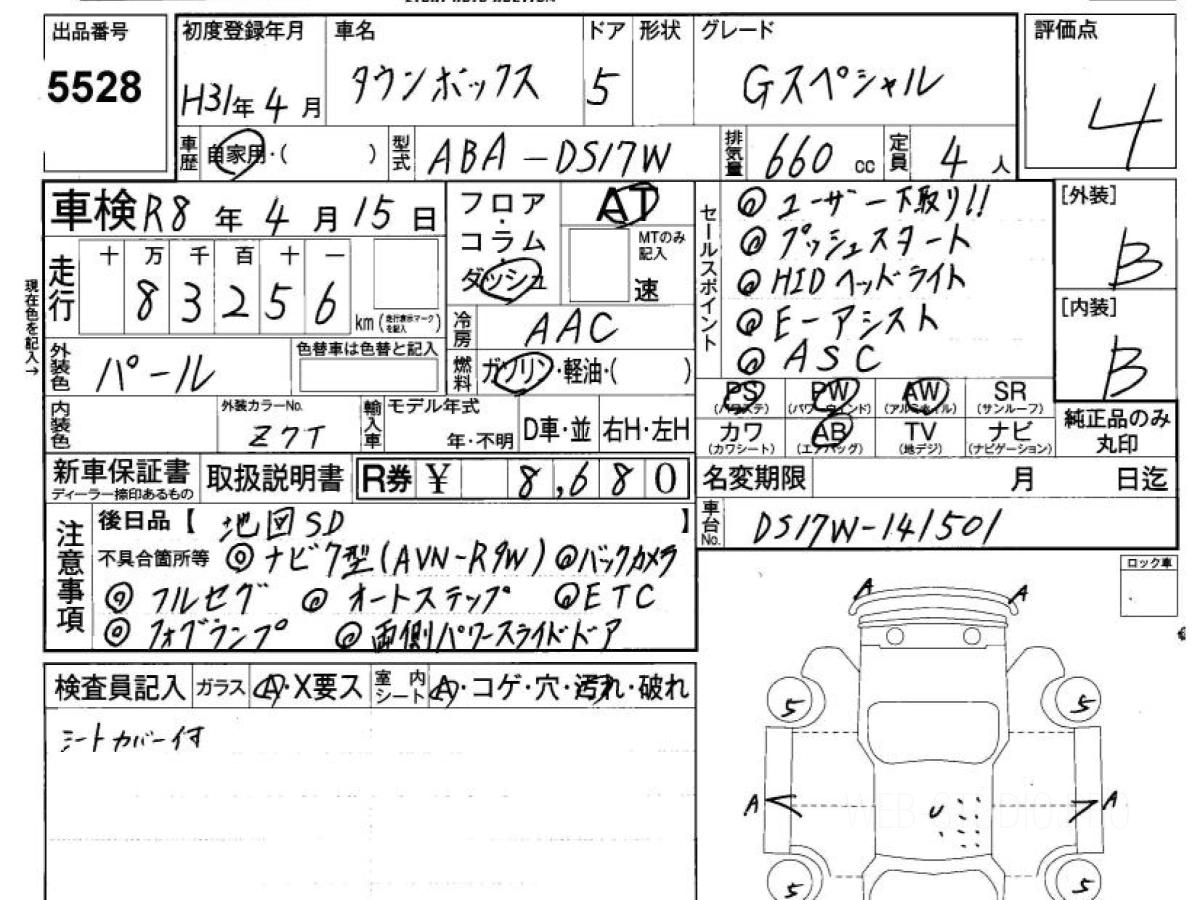 出品番号
5528
初度登録年月
H31年4月
車名
タウンボックス
ドア
5
形状
グレード
Gスペシャル
評価点
4
車歴 自家用・( )
型式 ABA-DS17W
排気量 660 cc
定員 4人
車検 R8年4月15日
走行
十 万 千 百 十 一
8 3 2 5 6 km (走行表示マークを記入)
現在色を記入→
外装色 パール
色替車は色替と記入
内装色
外装カラーNo.
Z7T
輸入車
モデル年式
年・不明
D車・並
右H・左H
フロア・コラム・ダッシュ
AT
MTのみ記入
速
冷房 AAC
燃料 ガソリン・軽油・( )
セールスポイント
◎ ユーザー下取り!!
◎ プッシュスタート
◎ HIDヘッドライト
◎ E-アシスト
◎ ASC
[外装]
B
[内装]
B
PS (パワステ)
PW (パワーウインド)
AW (アルミホイル)
SR (サンルーフ)
カワ (カワシート)
AB (エアバッグ)
TV (地デジ)
ナビ (ナビゲーション)
純正品のみ丸印
新車保証書
ディーラー捺印あるもの
取扱説明書
R券 ¥ 8,680
名変期限 月 日迄
車台No. DS17W-141501
注意事項
後日品【 地図SD 】
不具合箇所等 ◎ナビ7型(AVN-R9W) ◎バックカメラ
◎ フルセグ ◎ オートステップ ◎ETC
◎ フォグランプ ◎ 両側パワースライドドア
ロック車
検査員記入
ガラス A・X要ス
室内シート A・コゲ・穴・汚れ・破れ
シートカバー付
A A
5 5
A A
U
5 5
WEB-STUDIO.PRO